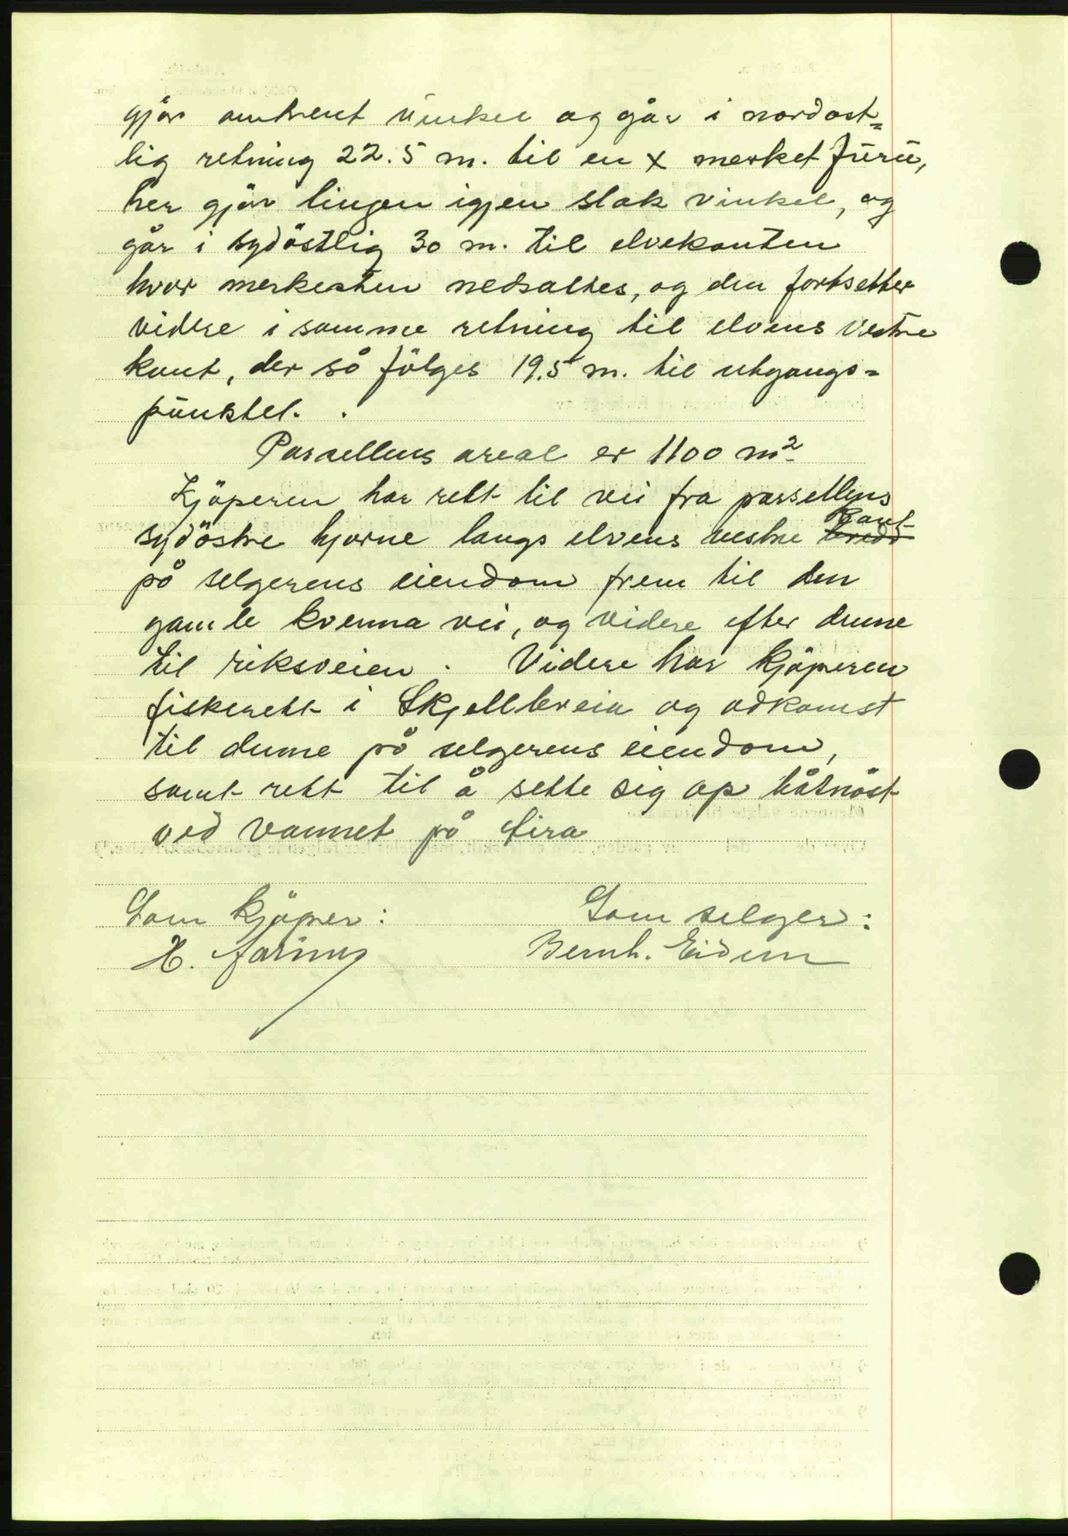 gjör omtrent vinkel og går i nordöst=
lig retning 22.5 m. til en x merket furu,
her gjör linjen igjen slak vinkel, og
går i sydöstlig 30 m. til elvekanten
hvor merkesten nedsattes, og den fortsetter
videre i samme retning til elvens vestre
kant, der så fölges 19.5 m. til utgangs=
punktet.
Parsellens areal er 1100 m2.
Kjöperen har rett til vei fra parsellens
sydöstre hjørne langs elvens vestre bredd kant
på selgerens eiendom frem til den
gamle kvenna vei, og videre efter denne
til riksveien. Videre har kjöperen
fiskerett i Skjellbreia og adkomst
til denne på selgerens eiendom,
samt rett til å sette sig op båtnöst
ved vannet på
Som kjöper: Som selger:
H. Bernh. Eidem